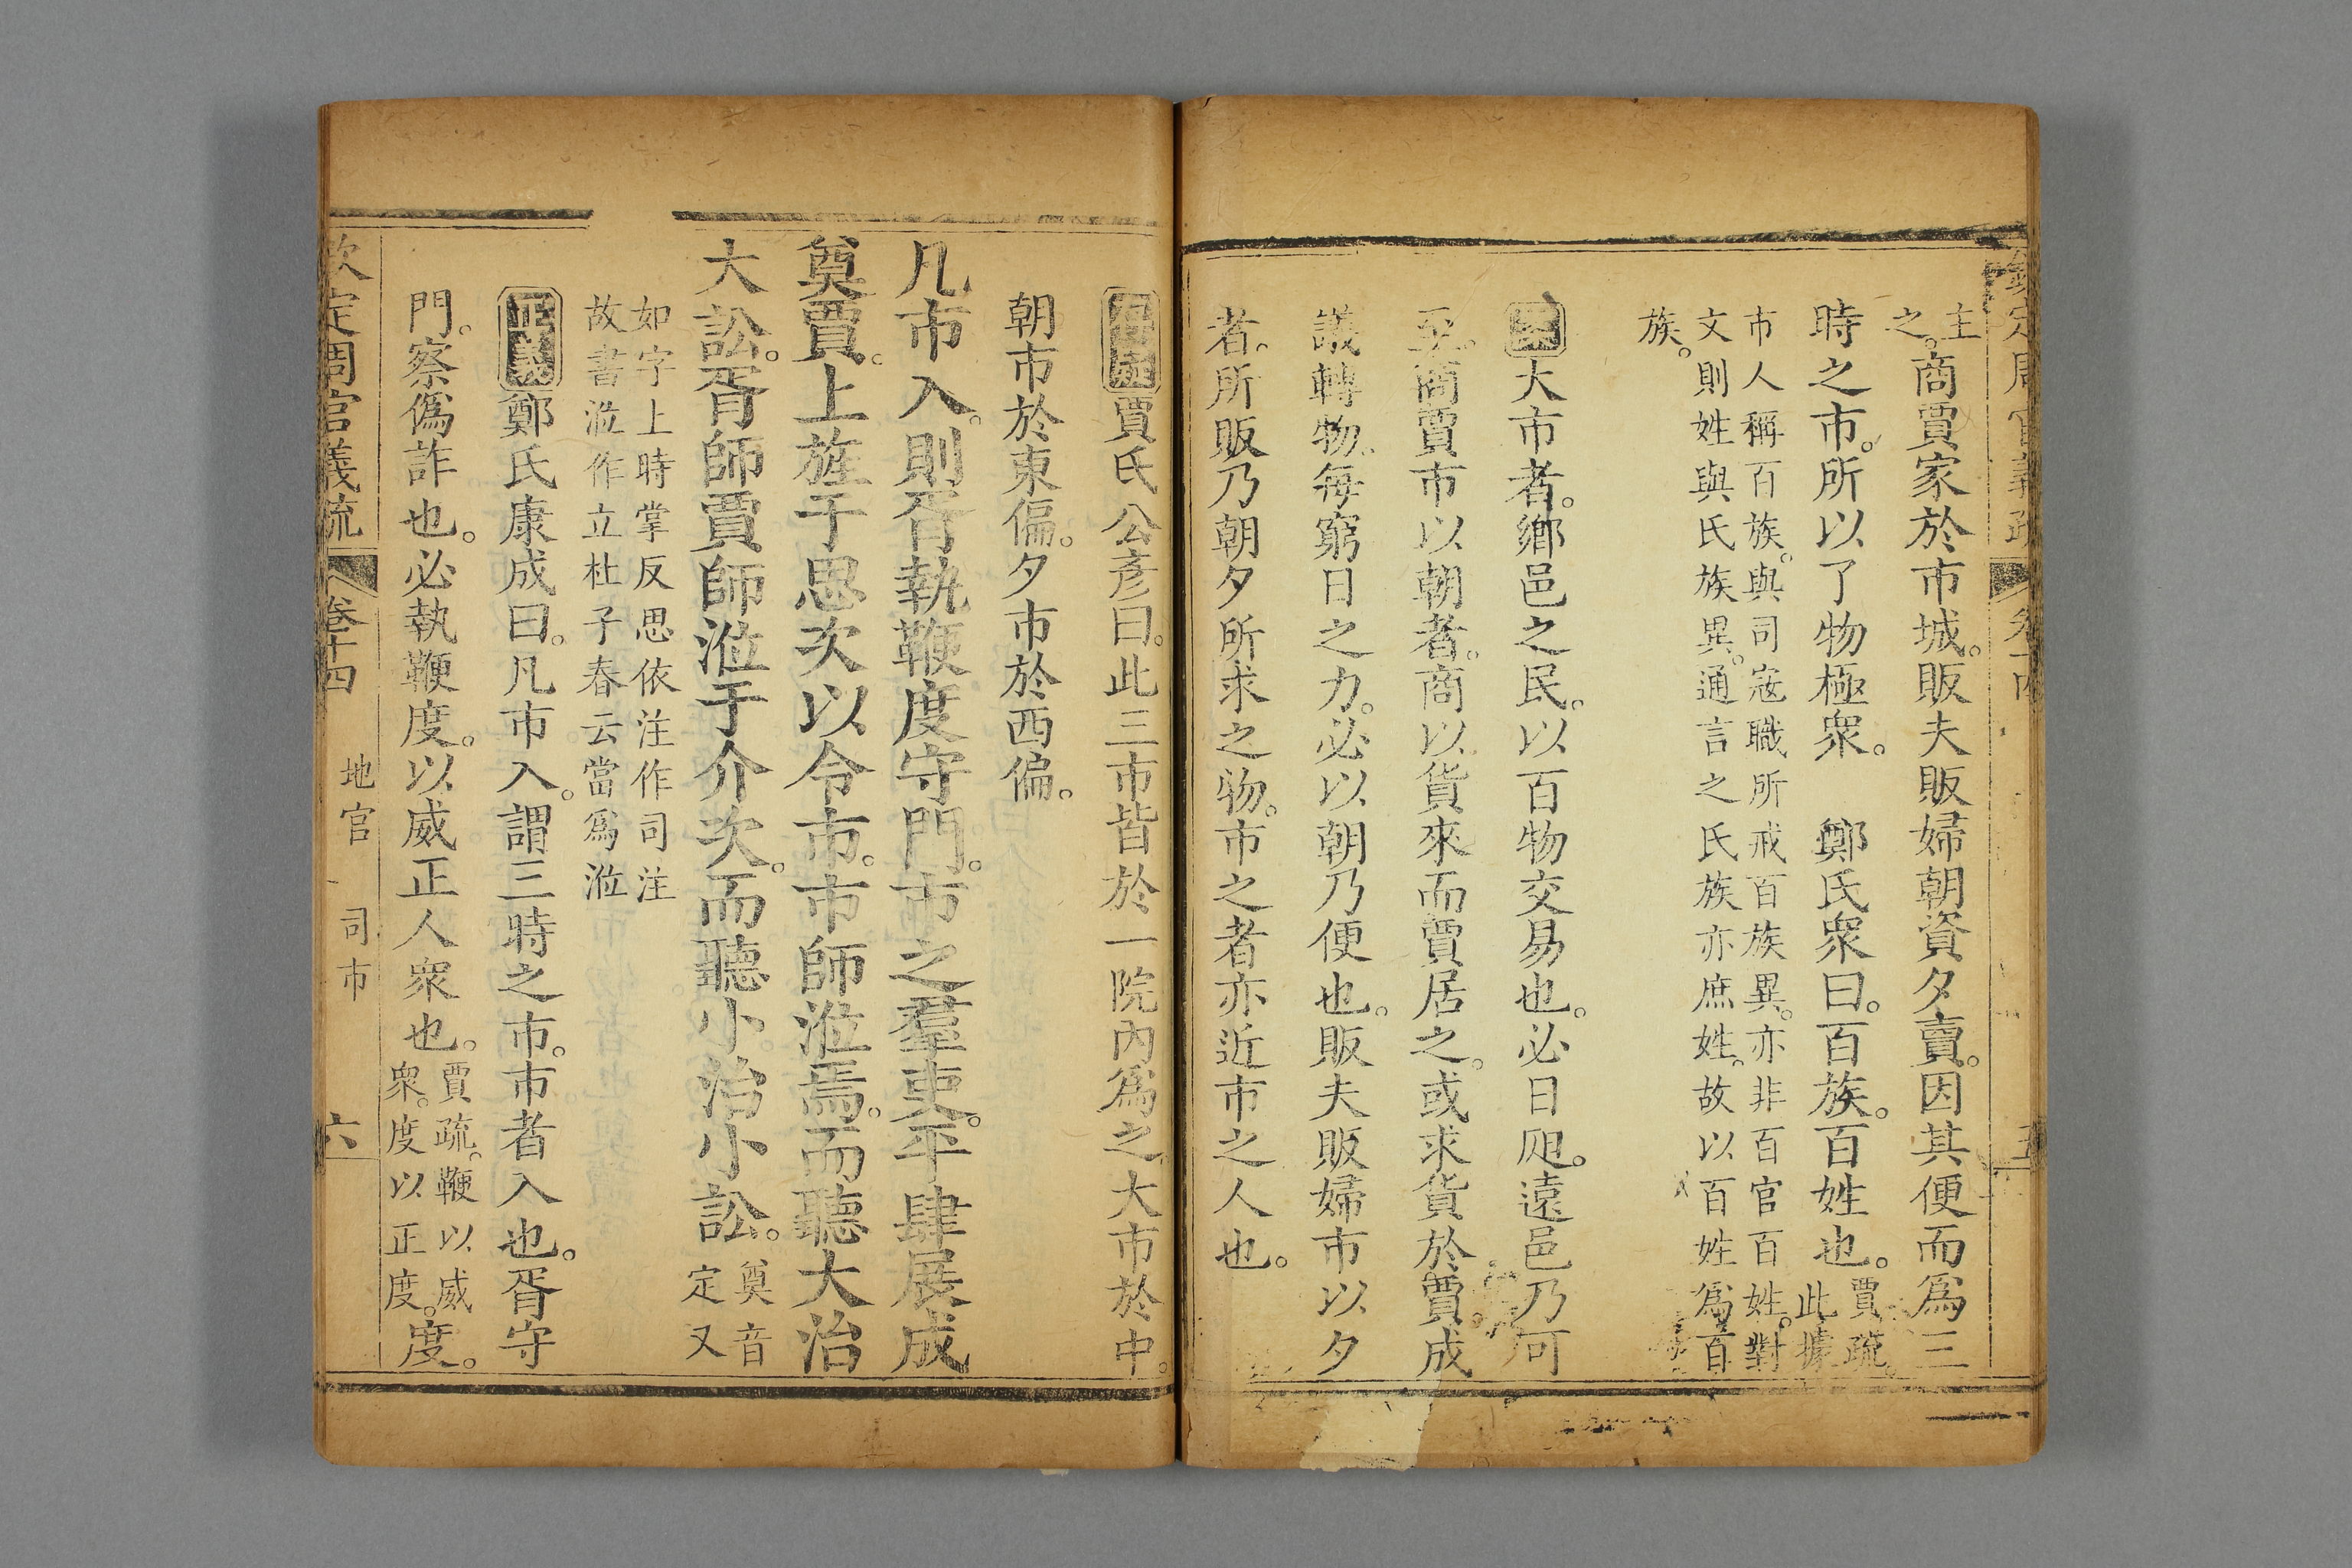 欽定周官義疏 卷十四 五
主
之。商賈家於市城。販夫販婦朝資夕賣。因其便而爲三
時之市。所以了物極衆。 鄭氏衆曰。百族。百姓也。賈疏。
此據
市人稱百族。與司寇職所戒百族異。亦非百官百姓。對
文則姓與氏族異。通言之氏族亦庶姓。故以百姓爲百
族。
案大市者。鄉邑之民。以百物交易也。必日昃。遠邑乃可
至。商賈市以朝者。商以貨來而賈居之。或求貨於賈。成
議轉物。每窮日之力。必以朝乃便也。販夫販婦市以夕
者。所販乃朝夕所求之物。市之者亦近市之人也。
存疑賈氏公彥曰。此三市皆於一院內爲之。大市於中。
朝市於東偏。夕市於西偏。
凡市入。則胥執鞭度守門。市之羣吏。平肆展成
奠賈。上旌于思次以令市。市師涖焉。而聽大治
大訟。胥師賈師涖于介次。而聽小治小訟。奠音
定又
如字上時掌反思依注作司注
故書涖作立杜子春云當爲涖
正義鄭氏康成曰。凡市入。謂三時之市。市者入也。胥守
門。察僞詐也。必執鞭度。以威正人衆也。賈疏。鞭以威
衆。度以正度。度。
欽定周官義疏 卷十四 地官 司市 六